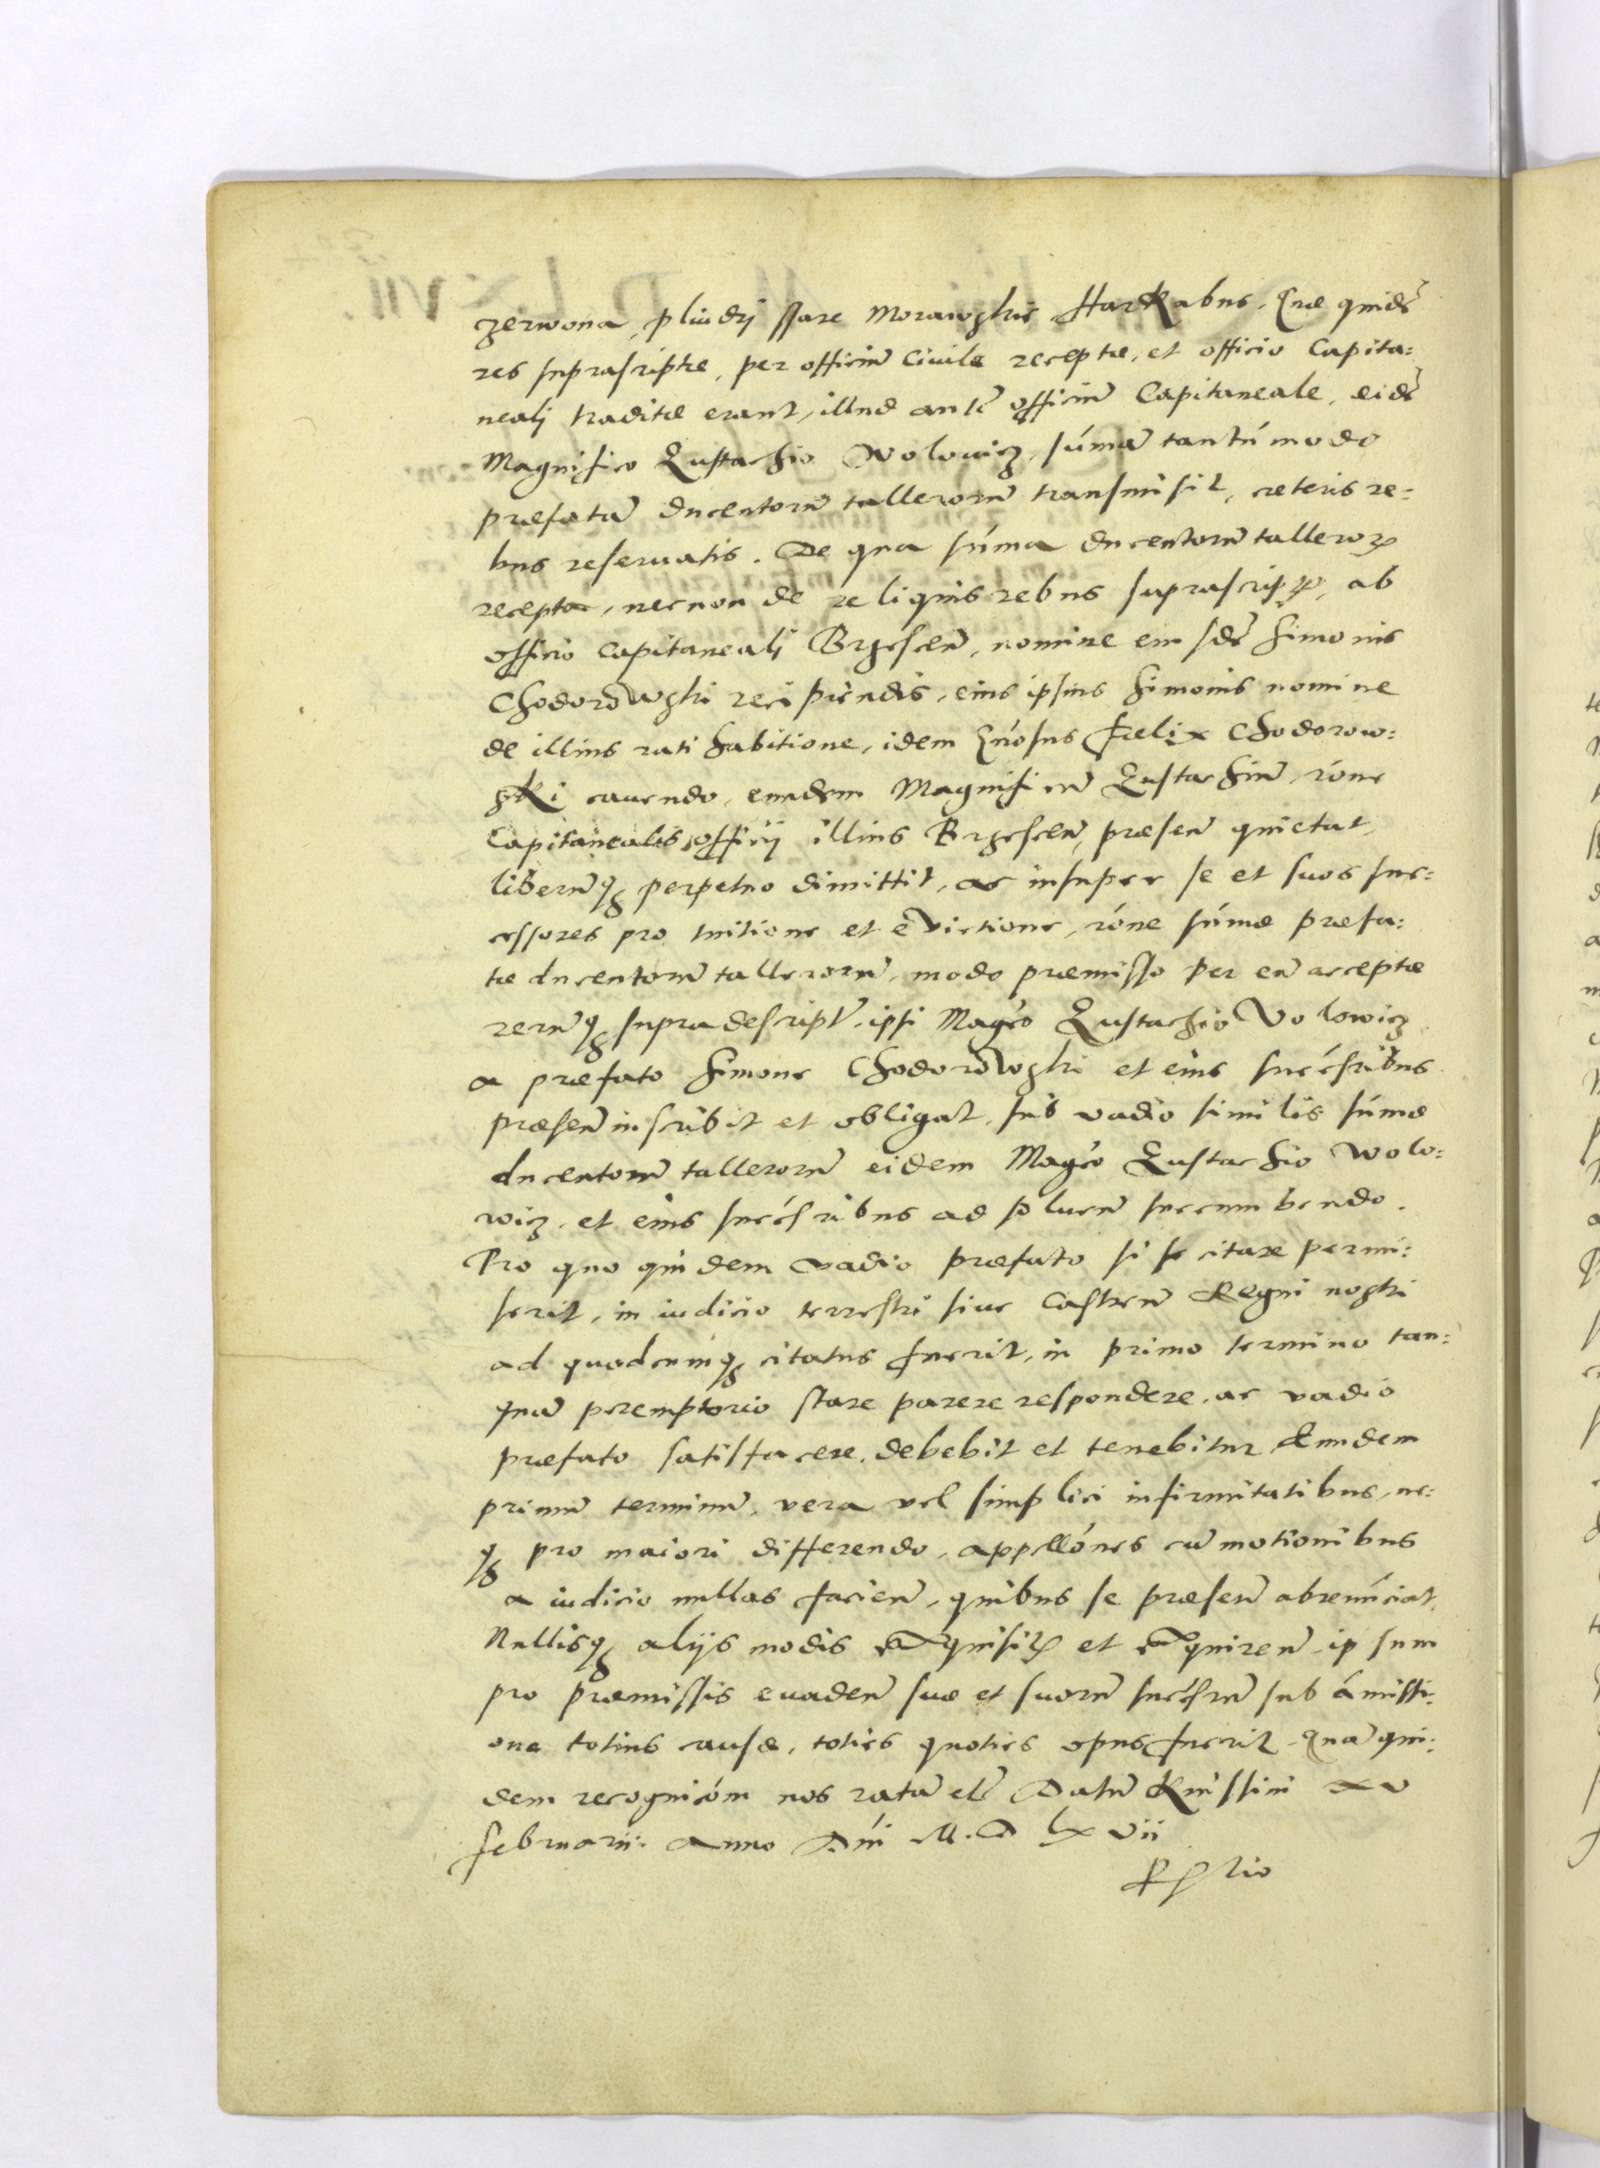 zerwona, pludrj ssare Morawzkie Harkabus. Quæ quidẽ
res suprascriptæ, per officiũ Ciuile receptæ, et officio Capita:
nealj traditæ erant, illud autẽ officiũ Capitaneale, eidẽ
Magnifico Eustachio Wolowicz, sũmam tantũmodo
præfatã ducentorũ tallerorũ transmisit, cæteris re:
bus reseruatis. De qua sũma ducentorũ talleroꝝ
recepta, necnon de reliquis rebus suprascripꝭ, ab
officio Capitanealj Brzesceñ, nomine eiusdẽ Simonis
Chodorowzki recipiendis, eius ipsius Simonis nomine
de illius rati habitione, idem Gñosus Fælix Chodorow:
zki cauendo, eundem Magnificũ Eustachiũ, rõne
Capitanealis officij illius Brzesceñ, præseñ quietat,
liberũqꝫ perpetuo dimittit, ac insuper se et suos suc:
cessores pro tuitione et evictione, rõne sũmæ præfa:
tæ ducentorũ tallerorũ, modo præmisso per eũ acceptæ
rerũqꝫ supradescript̃. ipsi Magc̃o Eustachio Volowicz
a præfato Simone Chodorowzki et eius succ̃sribus
præseñ inscribit et obligat, sub vadio similis sũmæ
ducentorũ tallerorũ eidem Magc̃o Eustachio Wolo:
wicz, et eius succ̃sribus ad solueñ succumbendo.
Pro quo quidem vadio præfato si se citare permi:
serit, in iudicio terrestri siue Castreñ Regni nostri
ad quodcunqꝫ citatus fuerit, in primo termino tan:
quã peremptorio stare parere respondere, ac vadio
præfato satisfacere, debebit et tenebitur Eundem
primũ terminũ, vera vel simplici infirmitatibus, ne:
qꝫ pro maiori differendo, appellõnes cũ motionibus
a iudicio nullas facieñ, quibus se præseñ abrenũciat,
Nullisqꝫ alijs modis exquisitꝭ et exquireñ ipsum
pro præmissis euadeñ suæ et suorũ succ̃srũ sub ãmissi:
one totius causæ, toties quoties opus fuerit. Quã qui:
dem recognicõm nos ratã etc̃ Datũ Knissini xv
februarij: Anno Dñi M. D lxvii